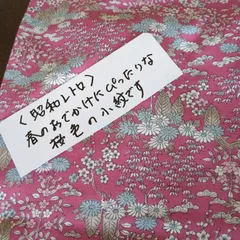 〈昭和レトロ〉
春のおでかけにぴったりな
桜色の小紋です